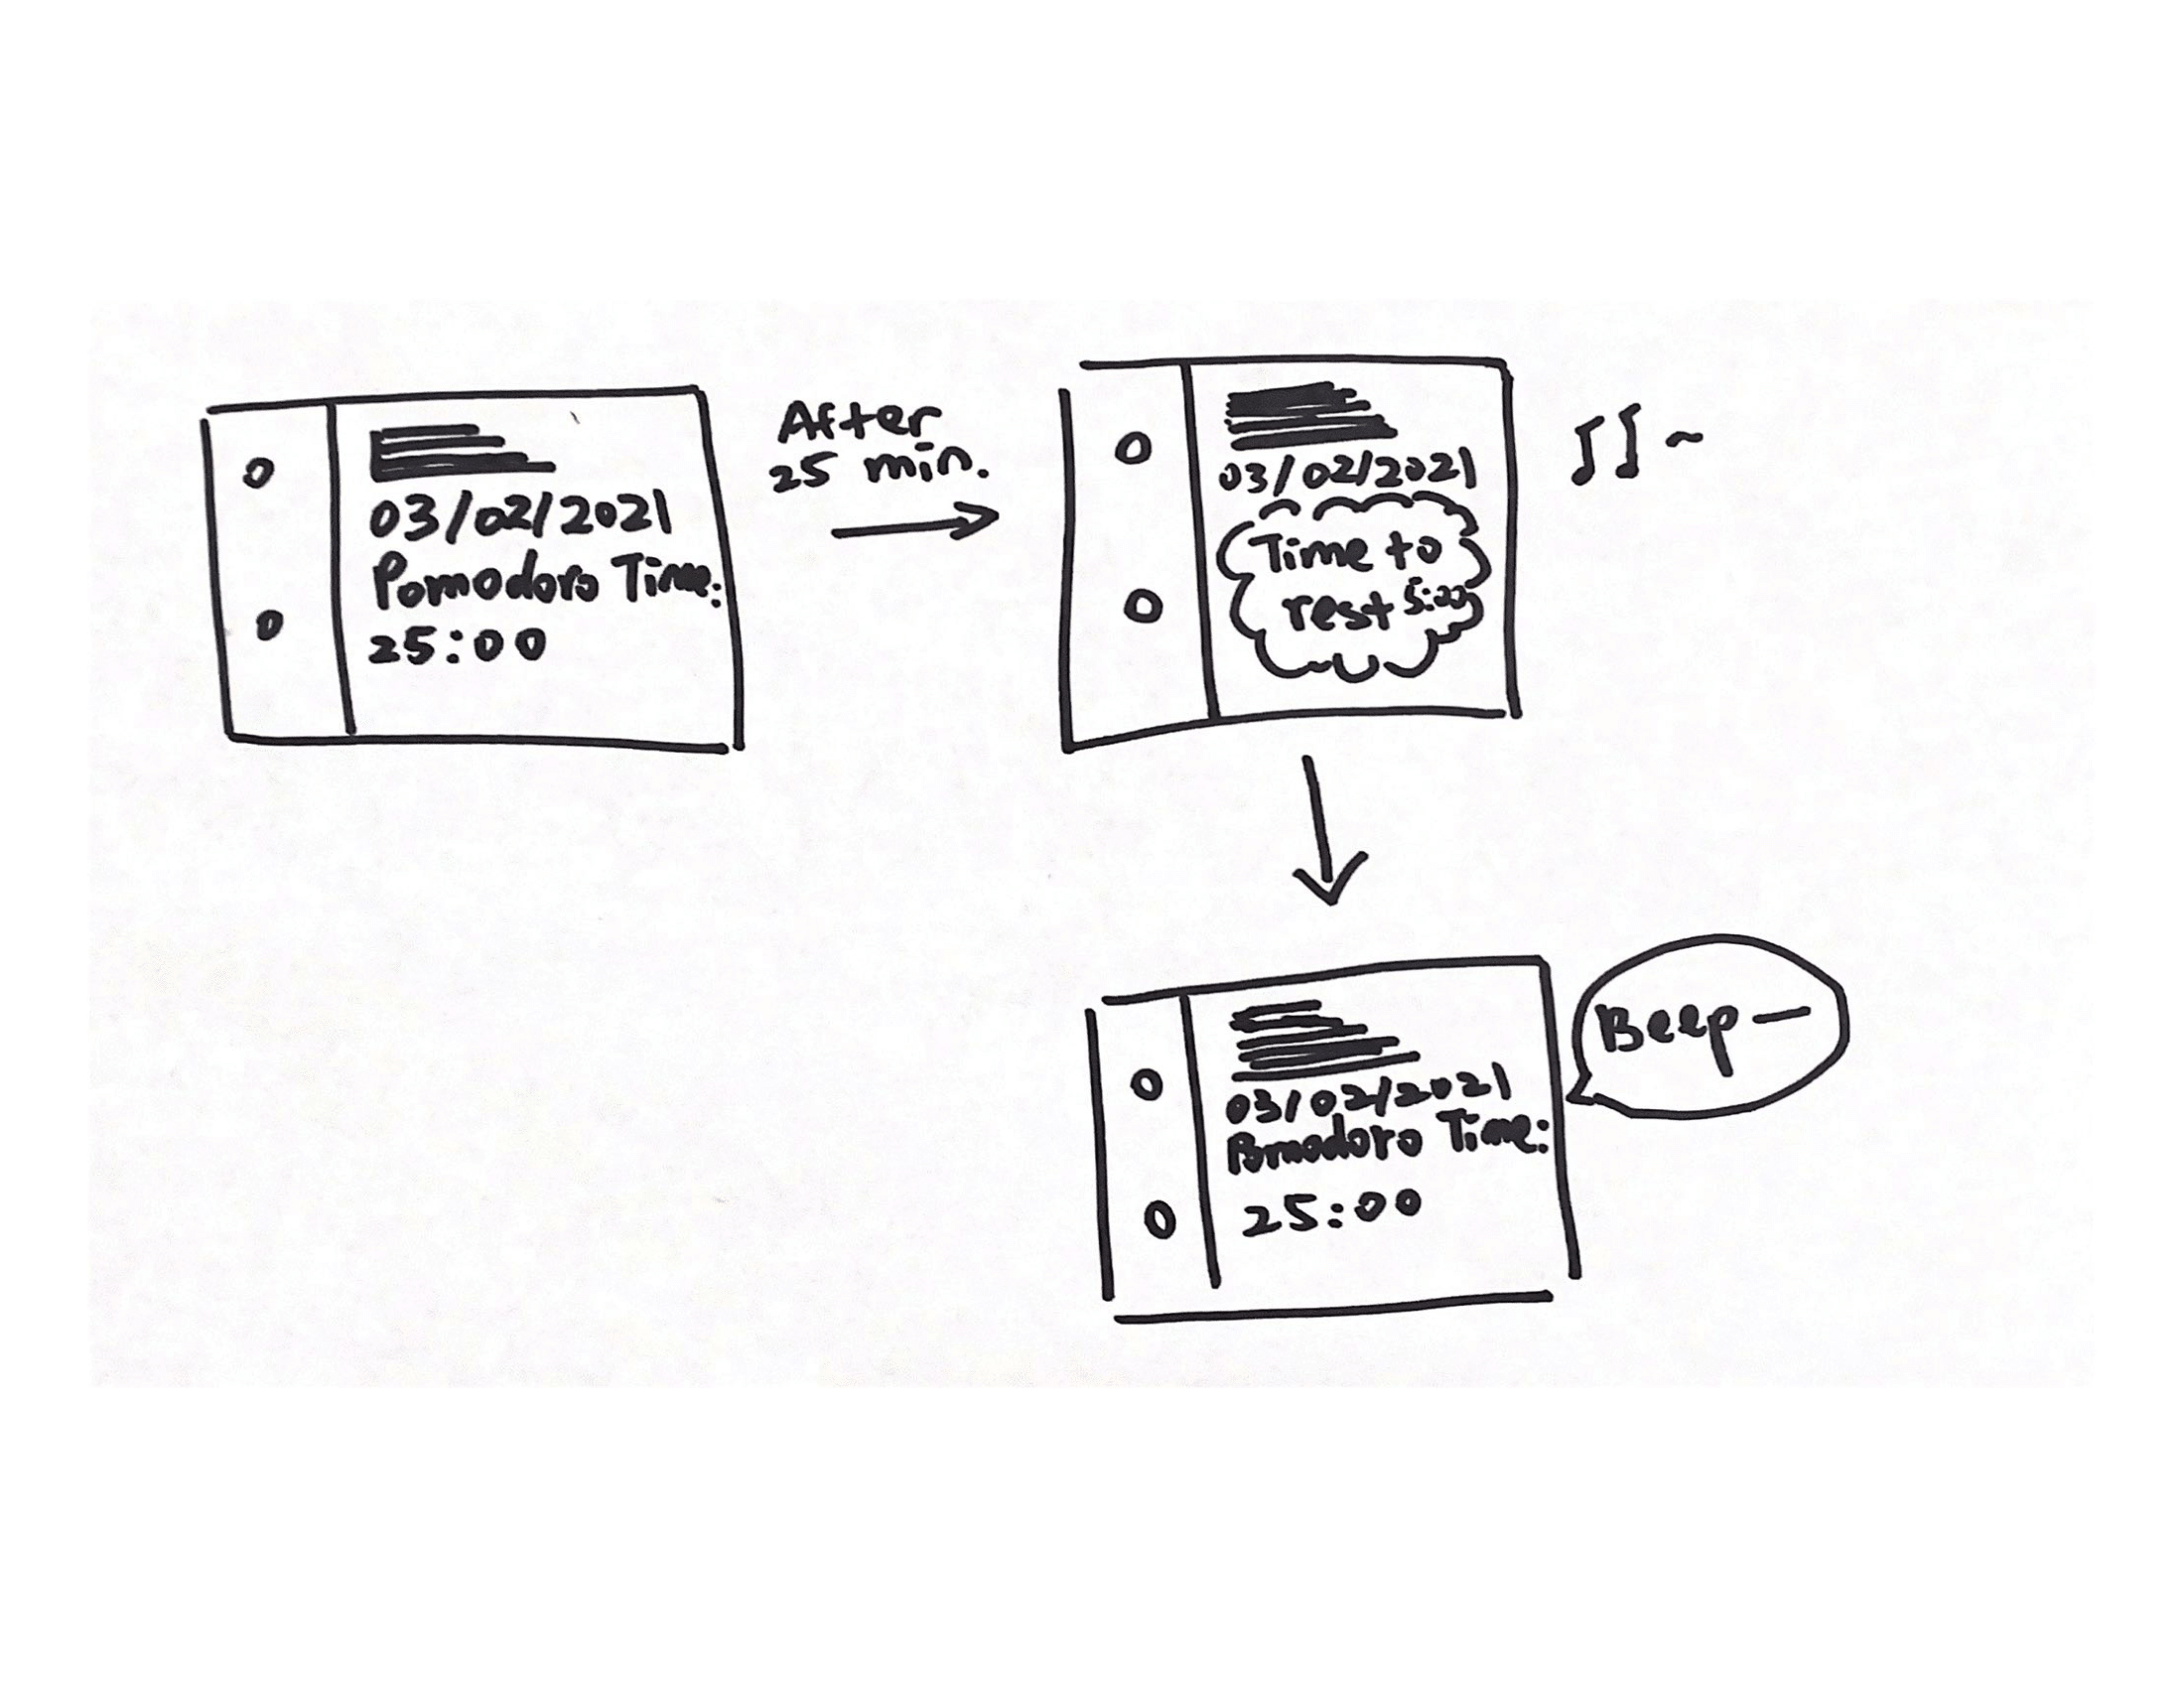 03/02/2021
Pomodoro Time:
25:00
After
25 min.
03/02/2021
Time to
rest 5:00
03/02/2021
Pomodoro Time:
25:00
Beep —